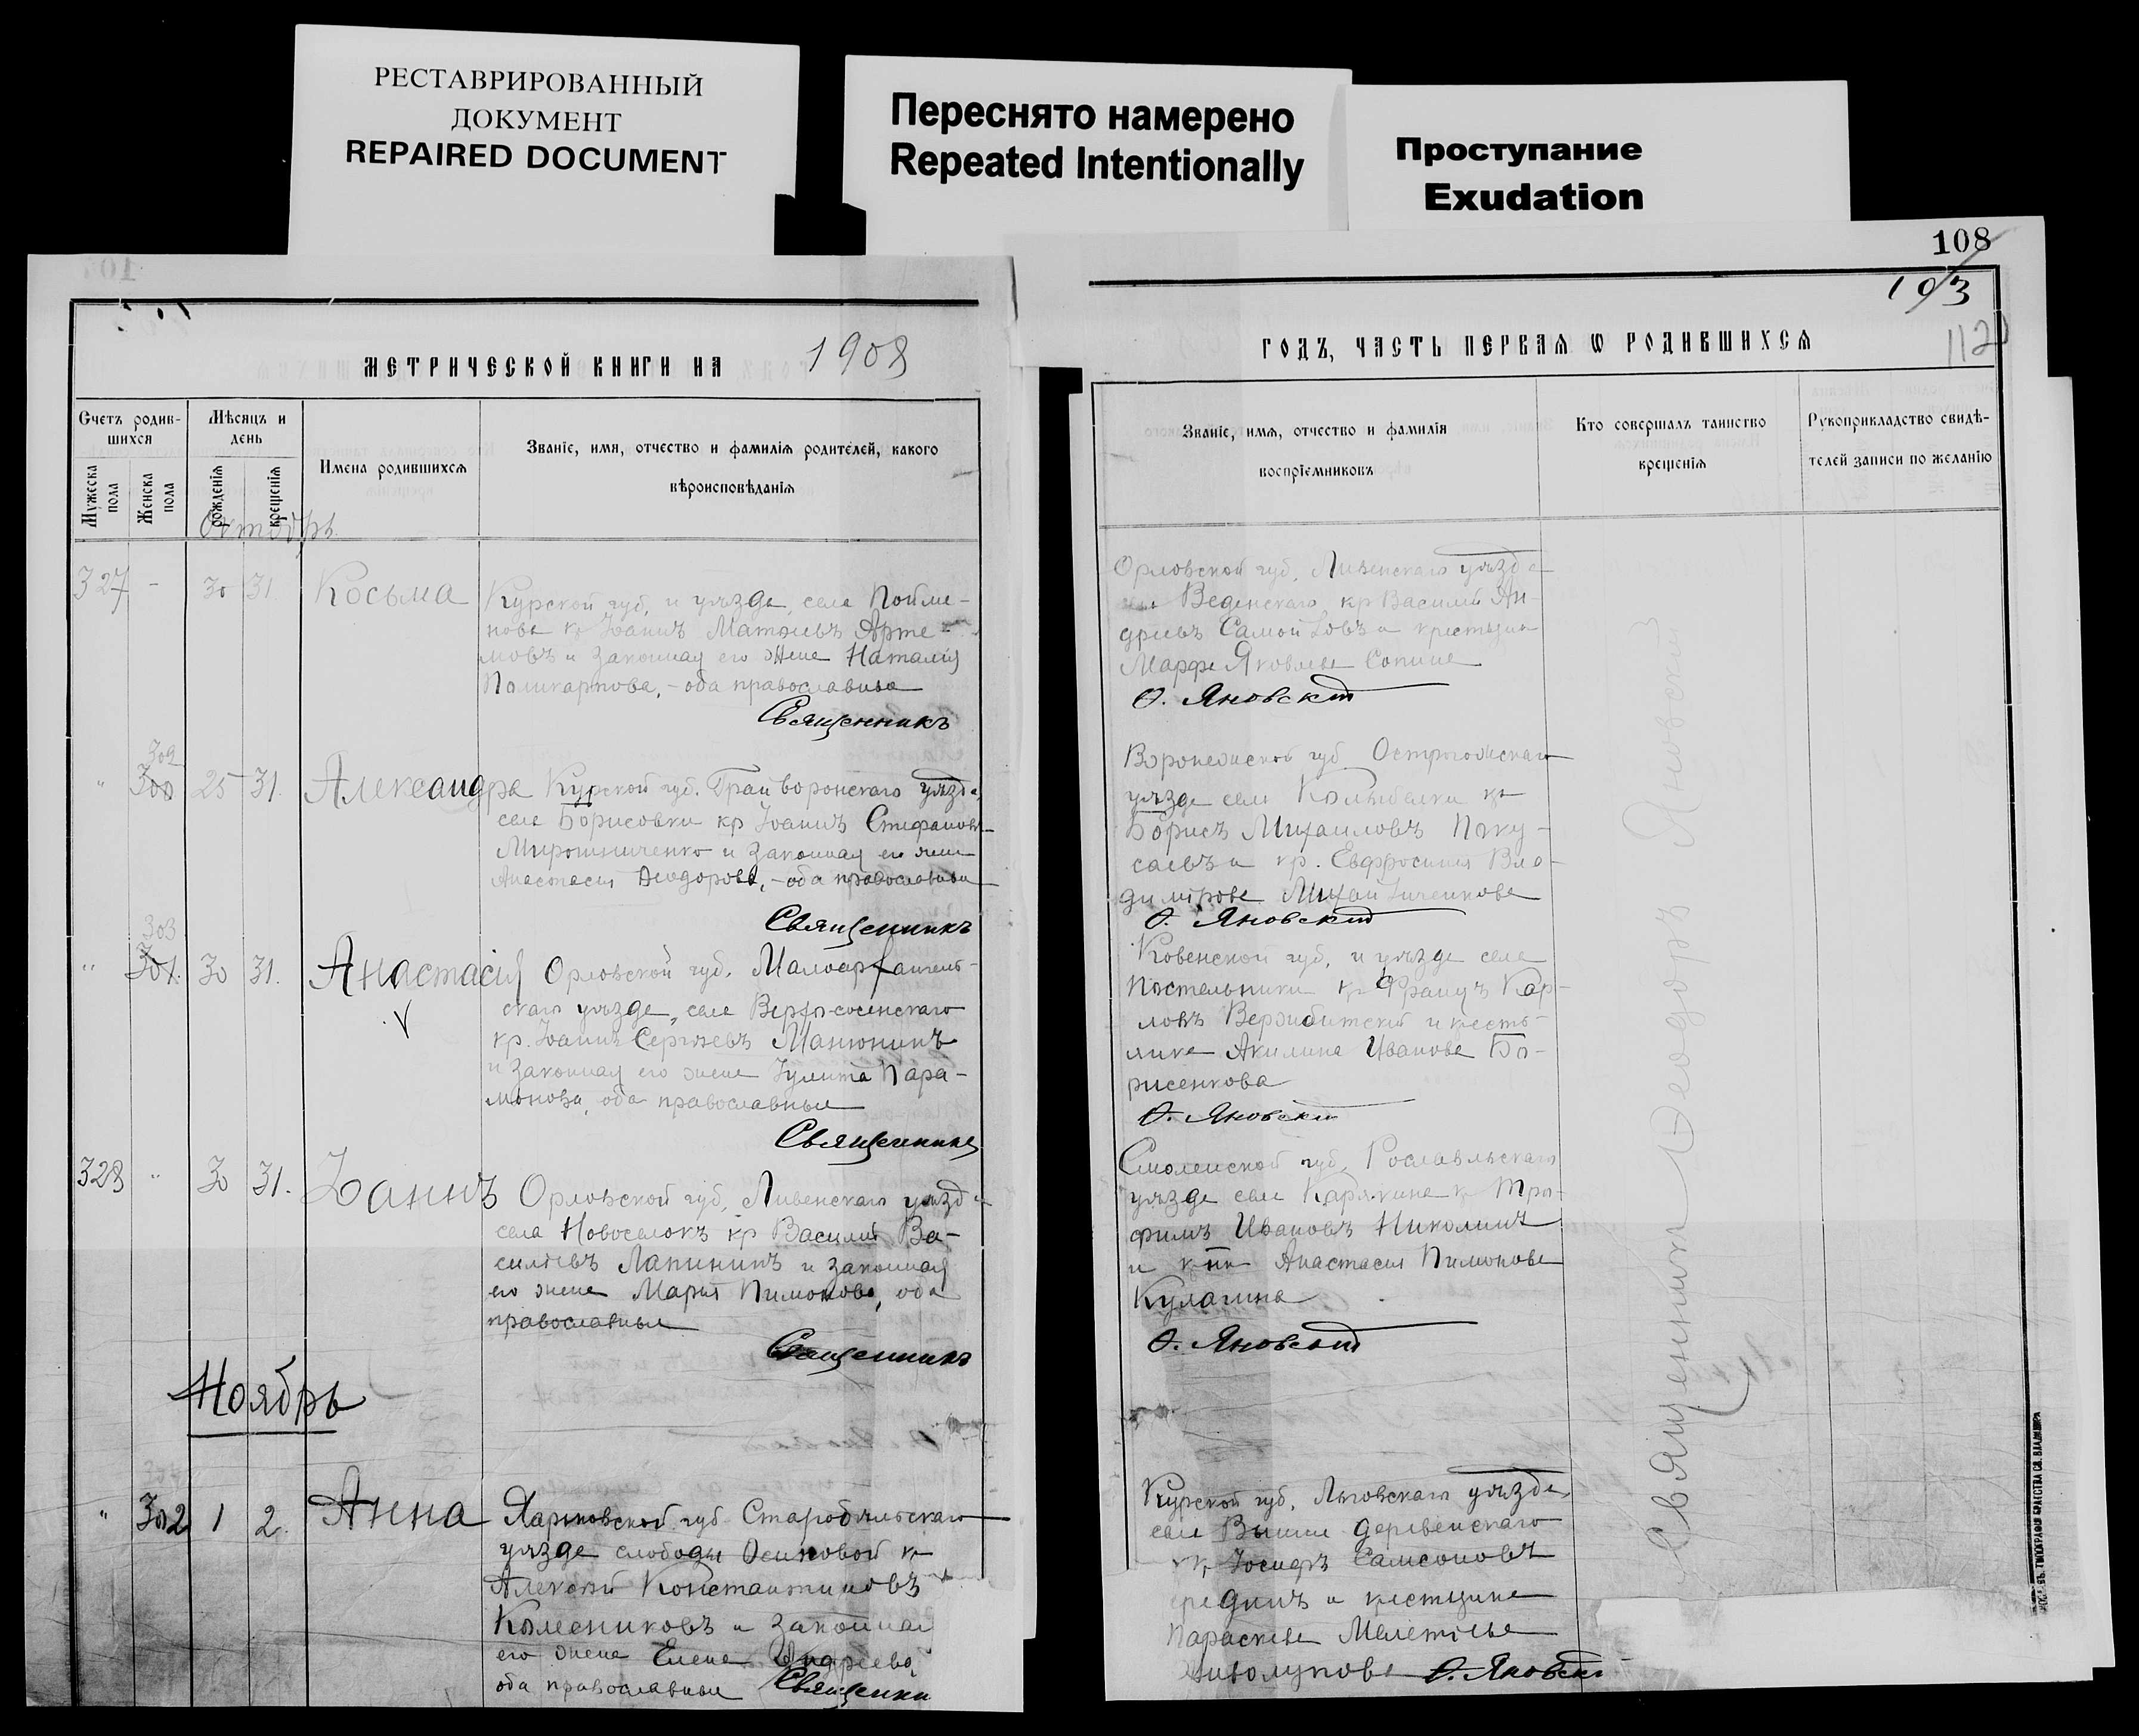 РЕСТАВРИРОВАННЫЙ
ДОКУМЕНТ
REPAIRED DOCUMENT
Переснято намерено
Repeated Intentionally
Проступание
Exudation
108
103
112
МЕТРИЧЕСКОЙ КНИГИ НА 1908
ГОДЪ, ЧАСТЬ ПЕРВАЯ Ѡ РОДИВШИХСЯ
Счетъ родив-
шихся
Мужеска
пола
Женска
пола
Мѣсяцъ и
день
рожденія
крещенія
Имена родившихся
Званіе, имя, отчество и фамилія родителей, какого
вѣроисповѣданія
Званіе, имя, отчество и фамилія
воспріемниковъ
Кто совершалъ таинство
крещенія
Рукоприкладство свидѣ-
телей записи по желанію
Октябрь
327 - 30 31. Косьма
Курской губ. и уѣзда, села Пойме-
нова кр Іоаннъ Матѳіевъ Арте-
мовъ и законная его жена Наталія
Поликарпова, - оба православные
Священникъ
Орловской губ. Ливенскаго уѣзда
Веденскаго кр Василій Ан-
дреевъ Самойловъ и крестьян
Марфа Яковлева Сопина
Ѳ. Яновскій
302
" 300 25 31. Александра
Курской губ. Грайворонскаго уѣзда,
села Борисовки кр Іоаннъ Стефановъ
Мирошниченко и законная его жена
Анастасія Ѳеодорова, - оба православные
Священникъ
Воронежской губ Острогожскаго
уѣзда села Колыбелки кр
Борисъ Михаиловъ Поку-
саевъ и кр. Евфросинія Вла-
димірова Михайличенкова
Ѳ. Яновскій
303
" 301. 30 31. Анастасія
Орловской губ. Малоархангель-
скаго уѣзда, села Верхо-сосенскаго
кр. Іоаннъ Сергѣевъ Манюнинъ
и законная его жена Іулита Пара-
монова, оба православные
Священникъ
Ковенской губ. и уѣзда села
Постельники кр Францъ Кар-
ловъ Вержбитскій и кресть-
янка Акилина Иванова Бо-
рисенкова
Ѳ. Яновскій
328 " 30 31. Іоаннъ
Орловской губ, Ливенскаго уѣзда
села Новоселокъ кр Василій Ва-
силіевъ Лапининъ и законная
его жена Марія Пимонова, оба
православные
Священникъ
Смоленской губ. Рославльскаго
уѣзда села Карякина кр Тро-
фимъ Ивановъ Николинъ
и кр-нка Анастасія Пимонова
Кулагина
Ѳ. Яновскій
Ноябрь
" 302 1 2. Анна
Харьковской губ Старобѣльскаго
уѣзда слободы Осиновой кр
Алексѣй Константиновъ
Колесниковъ и законная
его жена Елена Андреева,
оба православные Священник
Курской губ. Льговскаго уѣзда,
села Вышне деревенскаго
кр Іосифъ Самсоновъ
и крестьянка
Параскева Мелетіева
Ѳ. Яновскі
Священникъ Ѳеодоръ Яновскій